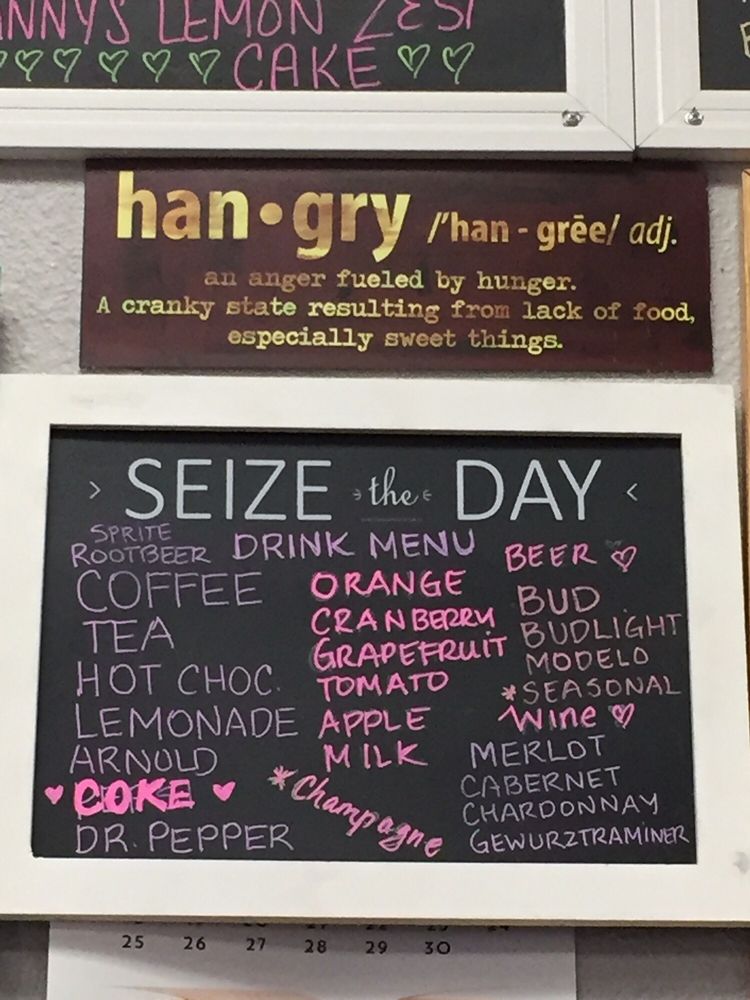 NNYS LEMON ZEST
CAKE
han•gry /'han - grēe/ adj.
an anger fueled by hunger.
A cranky state resulting from lack of food,
especially sweet things.
SEIZE the DAY
DRINK MENU
SPRITE
ROOTBEER
COFFEE
TEA
HOT CHOC.
LEMONADE
ARNOLD
COKE
DR. PEPPER
ORANGE
CRANBERRY
GRAPEFRUIT
TOMATO
APPLE
MILK
*Champagne
BEER
BUD
BUDLIGHT
MODELO
*SEASONAL
Wine
MERLOT
CABERNET
CHARDONNAY
GEWURZTRAMINER
25 26 27 28 29 30